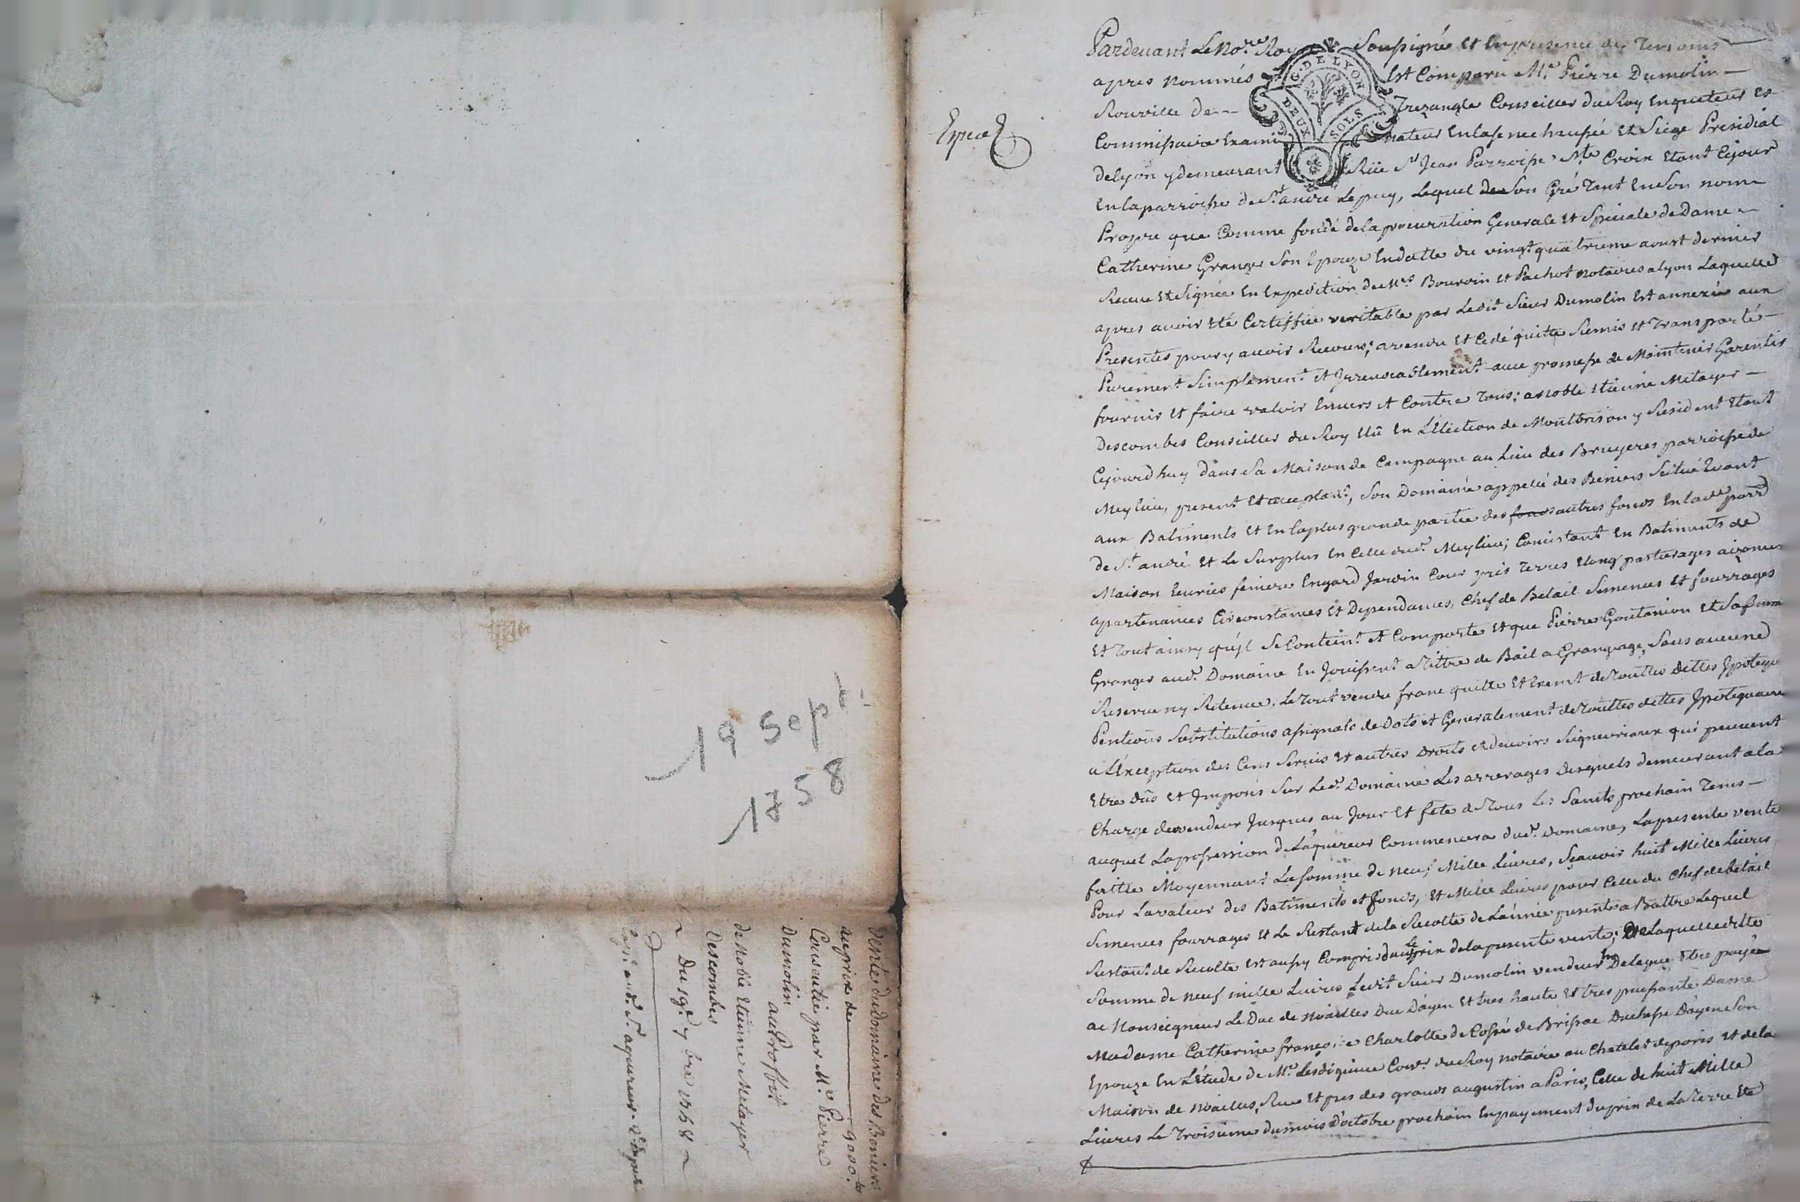 19 sep
1758
Vente du domaine des Beniers
au prix de 9000 lt
Consentie par Mre Pierre
Dumolin au Proffit
de Noble Etienne Metayer
Descombes
Du 19e 7bre 1768
Expedé
G. DE LYON
DEUX SOLS
Pardevant Le Nore Roy Soussigné et En presence des Temoins
apres nommés Est Comparu Mre Pierre Dumolin
Rouville de Trezangle Conseiller du Roy Enqueteur Et
Commissaire Examinateur En la senechaussée Et Siége Presidial
de Lyon y demeurant Rüe St Jean Parroisse Ste Croix Etant Cejourd
En la parroisse de St andré Le puy, Lequel de Son Gré Tant En Son nom
Propre que Comme fondé de la procuration Generale Et Speciale de Dame
Catherine Granger Son Epouze En datte du vingt quatrieme aoust dernier
Recue Et Signée En Expedition de Mes Bourdin Et Pachot notaires a Lyon Laquelle
apres avoir Eté Certiffiée veritable par Ledit Sieur Dumolin Est annexée aux
Presentes pour y avoir Recours; a vendu Et Cedé quitté Remis Et Transporté
Purement Simplement Et Irrevocablement avec promesse de Maintenir Garentir
fournir Et faire valoir Envers Et Contre Tous; a Noble Etienne Metayer
Descombes Conseiller du Roy Elû En L'Election de Montbrison y Resident Etant
Cejourdhuy dans Sa Maison de Campagne au Lieu des Bruyeres parroisse de
Meylieu, present Et acceptant, Son Domaine appellé des Beniers Scitué Quant
aux Batiments Et En la plus grande partie des fonds autres fonds En lade parr
de St andré Et Le Surplus En Celle dud. Meylieu; Consistant En Batiments de
Maison Ecuries feniere Engard Jardin Cour prés Terres Etang pasturages aizances
apartenances Circonstances Et Dependances, Chef de Betail Semences Et fourrages
Et Tout ainsy qu'il Se Contient Et Comporte Et que Pierre Goutanion Et Sa femme
Granger aud. Domaine En Jouissent a Tittre de Bail a Grangeage, Sans aucune
Reserve ny Retenue. Le Tout vendu franc quitte Et Exempt de Toutes Dettes Ipoteque
Pentions Substitutions assignats de Dots Et Generalement de Touttes dettes Ipotequaires
a L'Exception des Cens Servis Et autres Droits et devoirs Seigneuriaux qui peuvent
Etre Dûs Et Imposés Sur Led. Domaine Les arrerages Desquels demeurant a la
Charge du vendeur Jusques au Jour Et fête de Tous Les Saints prochain Tems
auquel La possession de L'aquereur Commencera dud. Domaine, La presente vente
faitte Moyennant La Somme de neuf Mille Livres, Scavoir huit Mille Livres
Pour La valeur des Batiments et fonds, Et Mille Livres pour Celle du Chef de betail
Semences fourrages Et Le Restant de la Recolte de L'année presente a Battre Lequel
Restant de Recolte Est aussy Compris dans Le prix de la presente vente; De Laquelle ditte
Somme de neuf mille Livres Ledit Sieur Dumolin vendeur En Delegue Etre payée
a Monseigneur Le Duc de Noailles Duc D'ayen Et tres haute Et tres puissante Dame
Madame Catherine françoise Charlotte de Cossé de Brissac Duchesse D'ayen Son
Epouze En L'Etude de Me Lesdiguiere Coner du Roy notaire au Chatelet de paris Et de la
Maison de Noailles, Rue Et pres des grands augustin a Paris, Celle de huit Mille
Livres Le Troisieme du mois d'octobre prochain En payement du prix de La Terre De